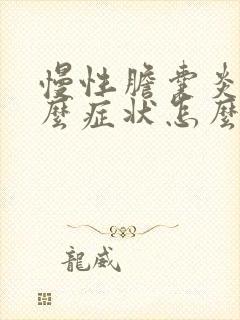 慢性膽囊炎
麼症狀怎麼
龍威